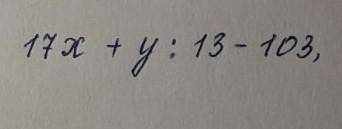 17x + y : 13 - 103,